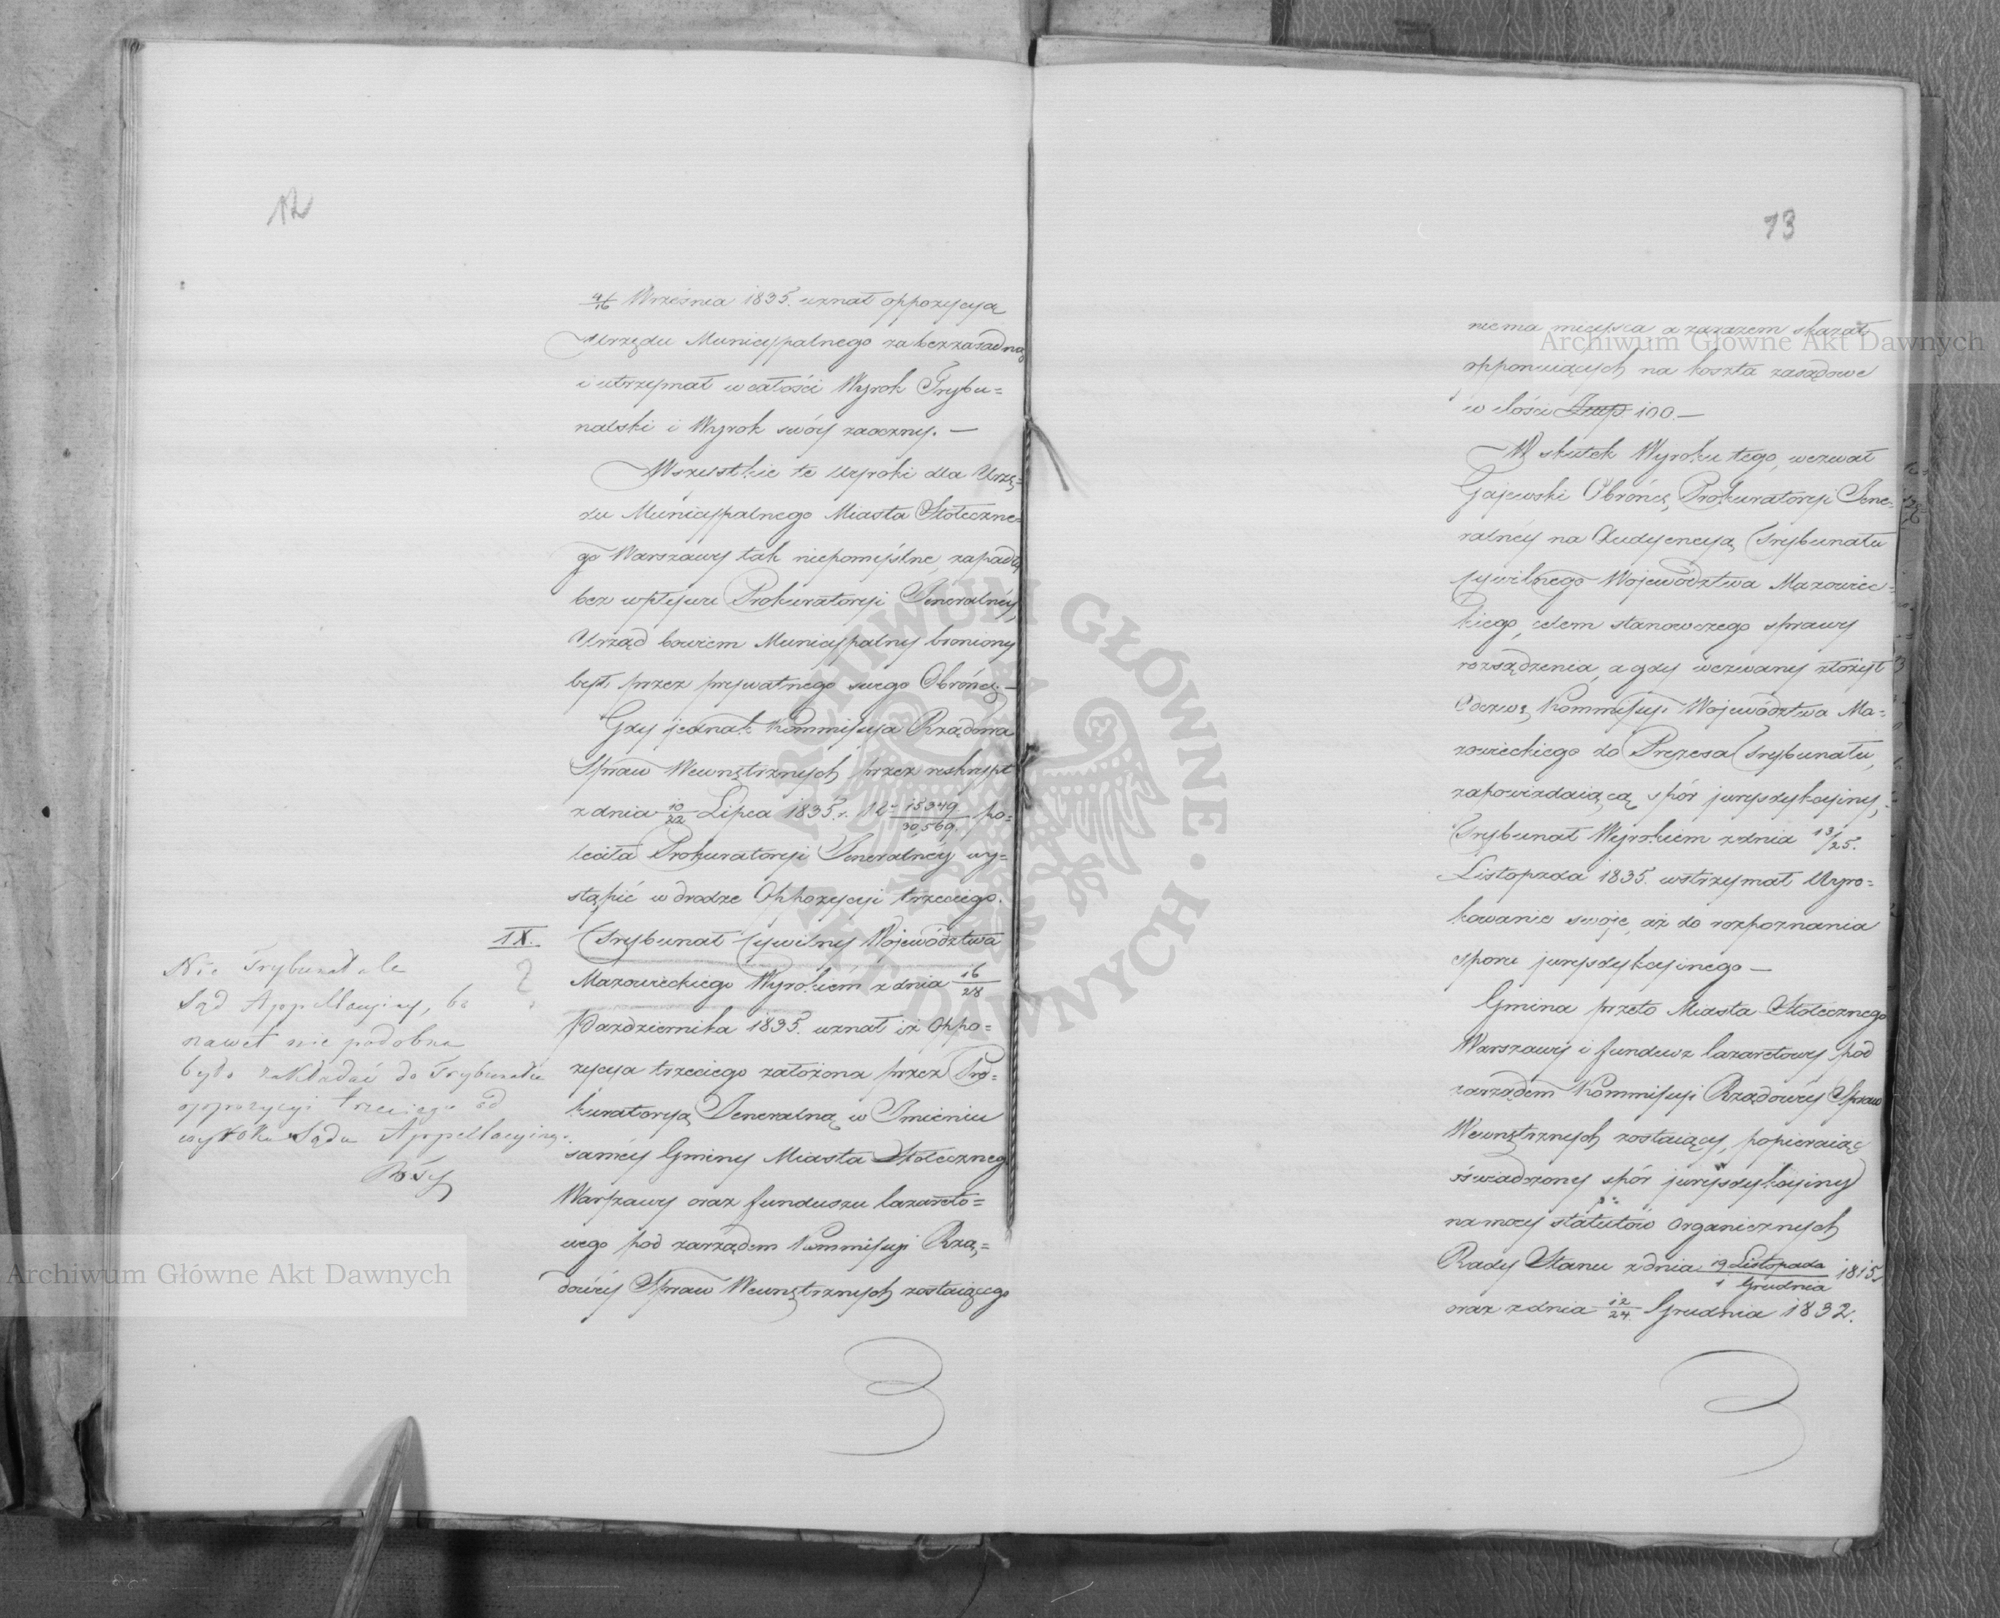 12
4/16 Września 1835. uznał oppozycyą
Urzędu Municypalnego za bezzasadną
i utrzymał w całości Wyrok Trybu=
nalski i Wyrok swóy zaoczny. —
Wszystkie te Wyroki dla Urzę=
du Municypalnego Miasta Stołeczne=
go Warszawy tak niepomyślne, zapadły
bez wpływu Prokuratoryi Jeneralnéy,
Urząd bowiem Municypalny broniony
był przez prywatnego swego Obrońcę. —
Gdy jednak Kommissya Rządowa
Spraw Wewnętrznych przez reskrypt
z dnia 10/22 Lipca 1835 r. No 15349/30,569. po=
leciła Prokuratoryi Jeneralnéy wy=
stąpić w drodze Oppozycyi trzeciego.
IX. Trybunał Cywilny Województwa
Mazowieckiego Wyrokiem z dnia 16/28
Października 1835. uznał iż oppo=
zycya trzeciego założona przez Pro=
kuratoryą Jeneralną w Imieniu
saméy Gminy Miasta Stołecznego
Warszawy oraz funduszu lazareto=
wego pod zarządem Kommissyi Rzą=
dowéy Spraw Wewnętrznych zostaiącego
?
Nie Trybunał ale
Sąd Appellacyiny, bo
nawet nie podobna
było zakładać do Trybunału
oppozycyi trzeciego od
wyroku Sądu Appellacyjnego.
13
niema mieysca a zarazem skazał
opponuiących na koszta zasądowe
w ilości 100 —
W skutek Wyroku tego, wezwał
Gajewski Obrońcę Prokuratoryi Jene=
ralnéy na Audyencyą Trybunału
Cywilnego Województwa Mazowiec=
kiego, celem stanowczego sprawy
rozsądzenia, a gdy wezwany złożył
Odezwę Kommissyi Województwa Ma=
zowieckiego do Prezesa Trybunału,
zapowiadaiącą spór jurysdykcyiny,
Trybunał Wyrokiem z dnia 13/25.
Listopada 1835. wstrzymał Wyro=
kowanie swoje, aż do rozpoznania
sporu jurysdykcyinego —
Gmina przeto Miasta Stołecznego
Warszawy i fundusz lazaretowy pod
zarządem Kommissyi Rządowéy Spraw
Wewnętrznych zostaiący, popieraiąc
oświadczony spór jurysdykcyiny
na mocy statutów organicznych
Rady Stanu z dnia 19 Listopada/1 Grudnia 1815.
oraz z dnia 12/24 Grudnia 1832.
Archiwum Główne Akt Dawnych
Archiwum Główne Akt Dawnych
ARCHIWUM GŁÓWNE AKT DAWNYCH